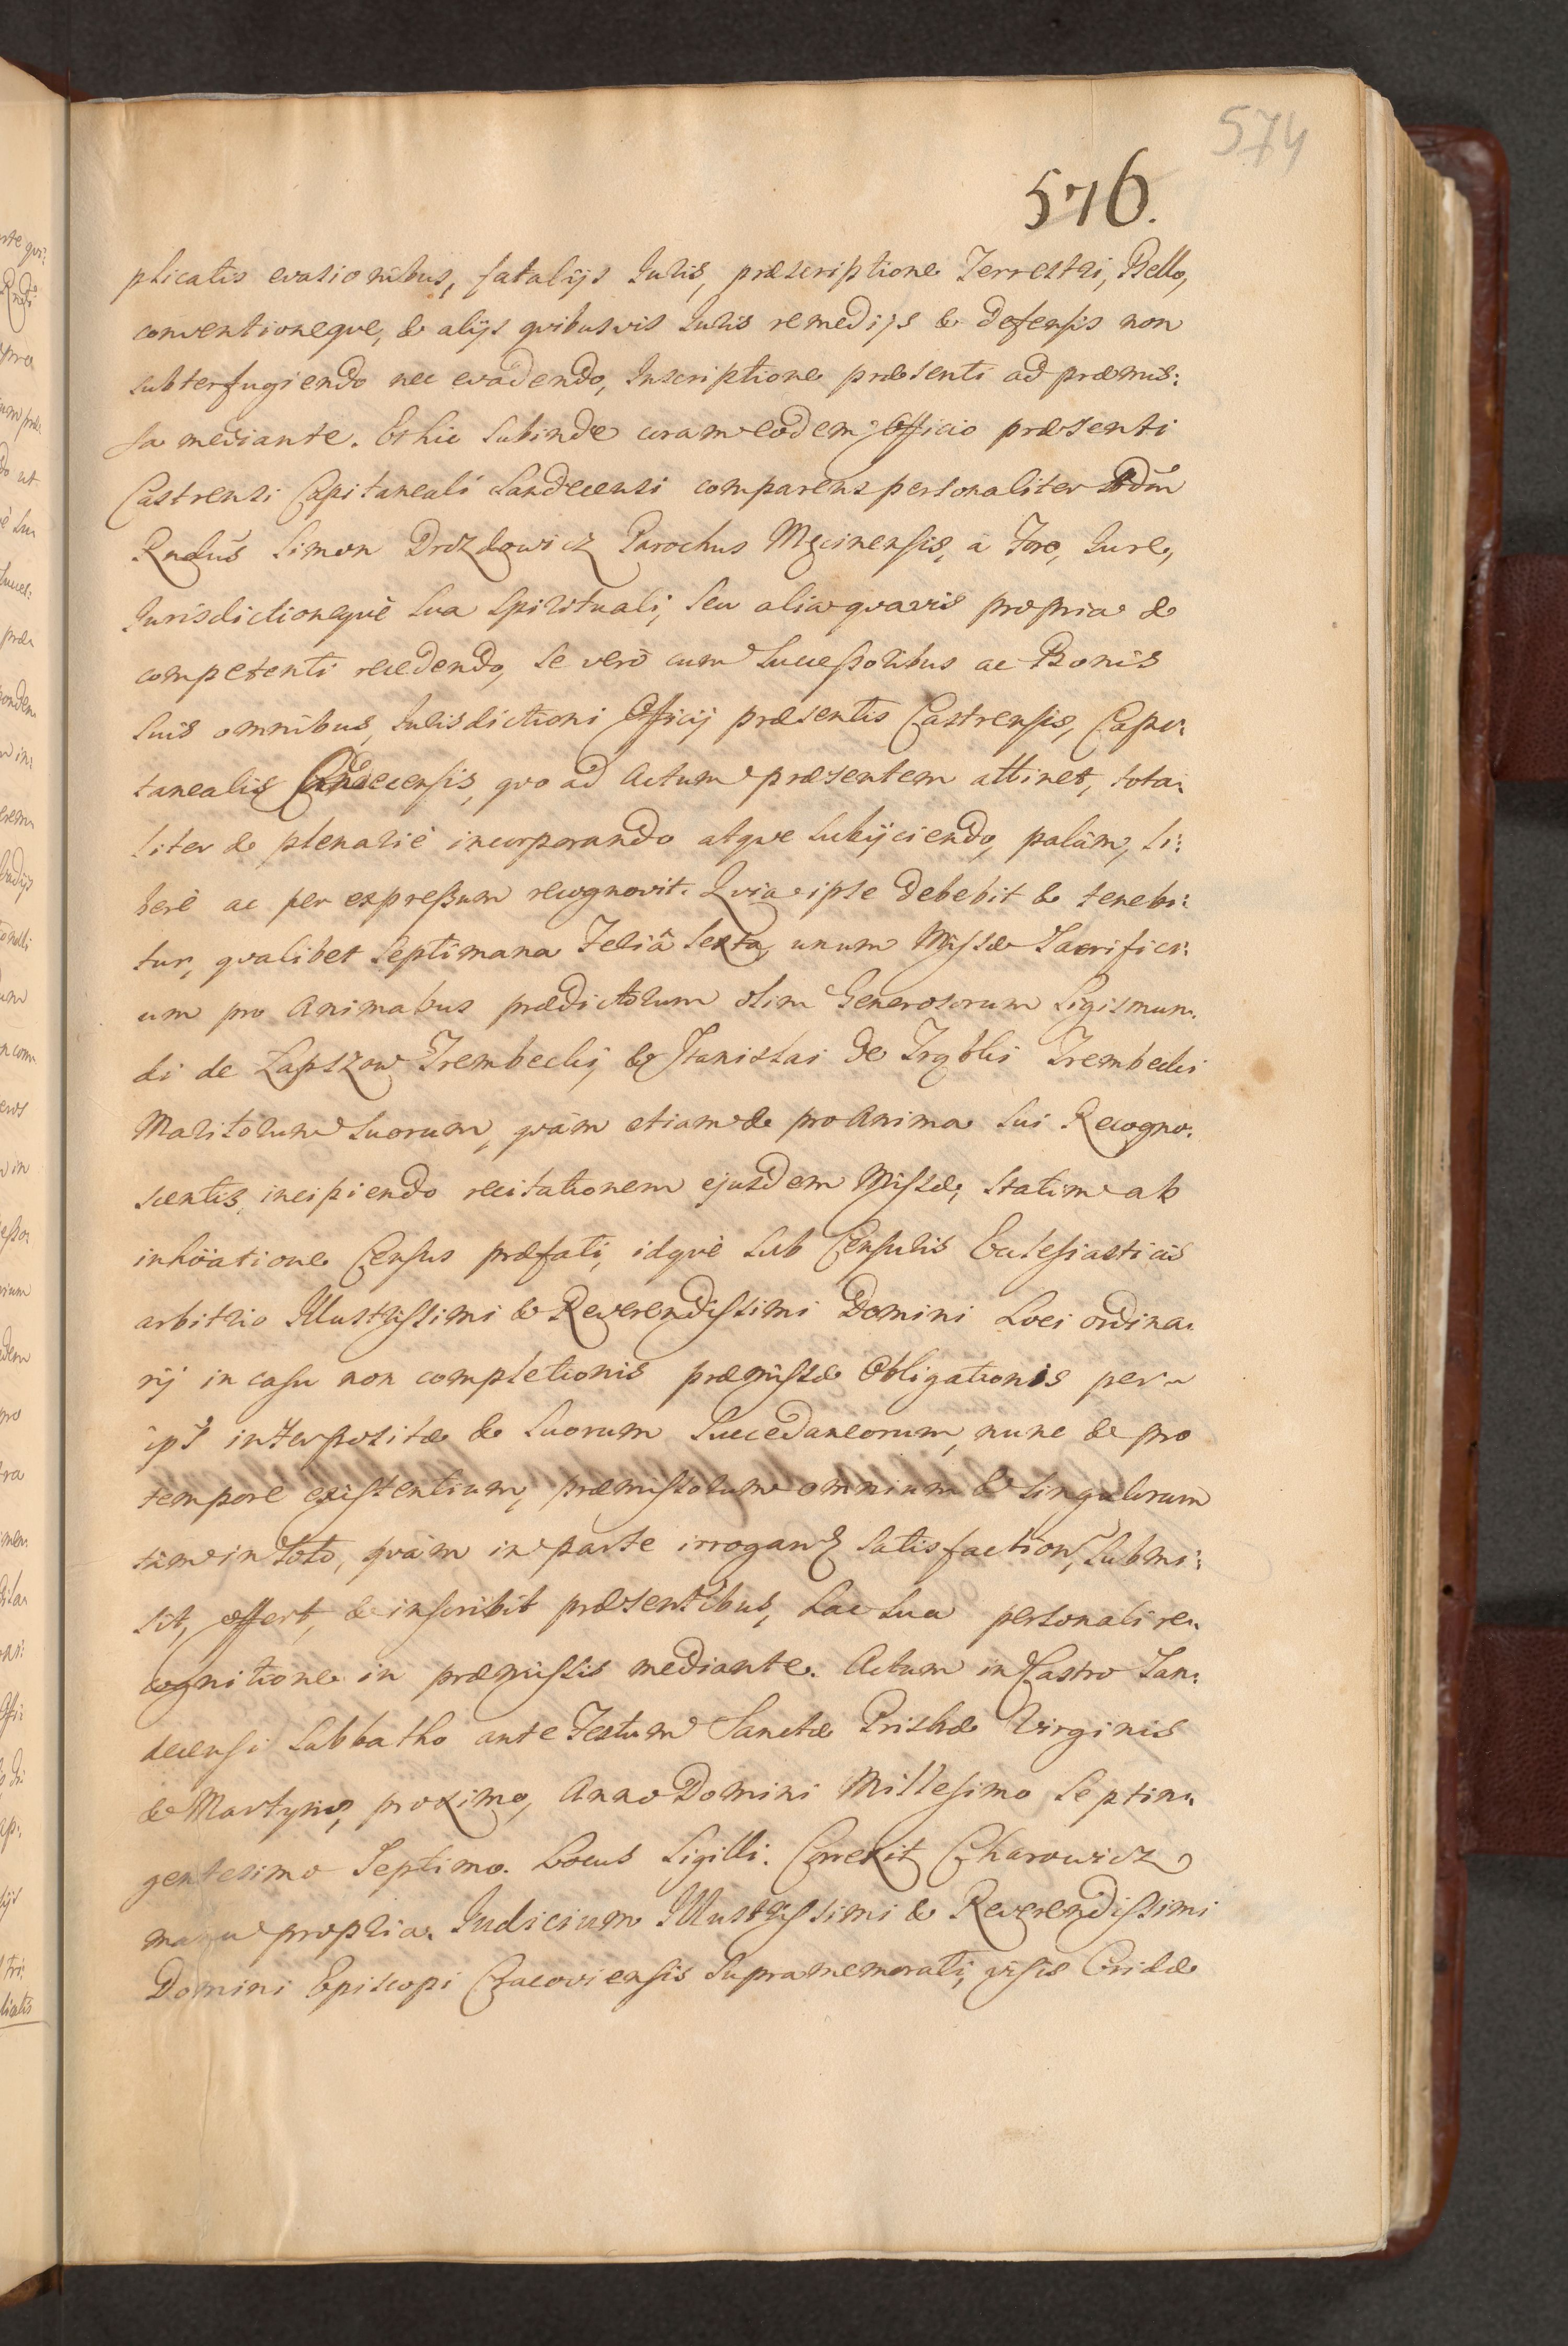 574
576.
plicatis evasionibus, fatalijs Juris, præscriptione Terrestri, Bello,
conventioneqve, & alijs qvibusvis Juris remedijs & defensis non
subterfugiendo nec evadendo, Inscriptione præsenti ad præmis:
sa mediante. Et hic subinde coram eodem Officio præsenti
Castrensi Capitaneali Sandecensi comparens personaliter Adm̃
Rndus̃ Simon Drozdowicz Parochus Męcinensis, à Foro, Jure,
Jurisdictioneqvè sua Spirituali, seu alia qvavis propria &
competenti recedendo, se verò cum Successoribus ac Bonis
suis omnibus, Jurisdictioni Officij præsentis Castrensis, Capi:
tanealis Sandecensis, qvo ad Actum præsentem attinet, tota:
liter & plenariè incorporando atqve subijciendo, palàm, li:
berè ac per expressum recognovit. Qvia ipse debebit & tenebi:
tur, qvalibet Septimana Feriâ Sexta, unum Missæ Sacrifici:
um pro Animabus prædictorum olim Generosorum Sigismun:
di de Łapszow Trembecki, & Stanislai de Trębki Trembecki
Maritorum suorum, qvàm etiam & pro Anima sui Recogno:
scentis, incipiendo recitationem ejusdem Missæ, statim ab
inhöatione Census præfati, idqvè sub Censuris Ecclesiasticis
arbitrio Illustrissimi & Reverendissimi Domini Loci ordina:
rij in casu non completionis præmissæ Obligationis per
ip̃s interpositæ & suorum Succedaneorum, nunc & pro
tempore existentium, præmissorum omnium & singulorum
tùm in toto, qvàm in parte irrogan̄ satisfaction̄, submi:
sit, offert, & inscribit præsentibus, hac sua personali re:
cognitione in præmissis mediante. Actum in Castro San:
decensi Sabbatho ante Festum Sanctæ Priscæ Virginis
& Martyris, proximo, Anno Domini Millesimo Septin:
gentesimo Septimo. Locus Sigilli. Correxit Charowicz
manu propria. Judicium Illustrissimi & Reverendissimi
Domini Episcopi Cracoviensis supramemorati, visis Cridæ